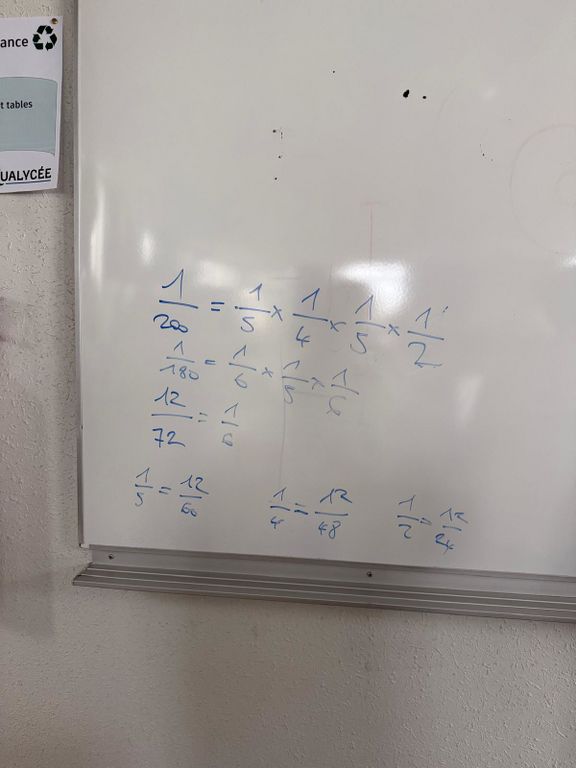 ance
t tables
UALYCÉE
1/200 = 1/5 × 1/4 × 1/5 × 1/2
1/180 = 1/6 × 1/5 × 1/6
12/72 = 1/6
1/5 = 12/60 1/4 = 12/48 1/2 = 12/24